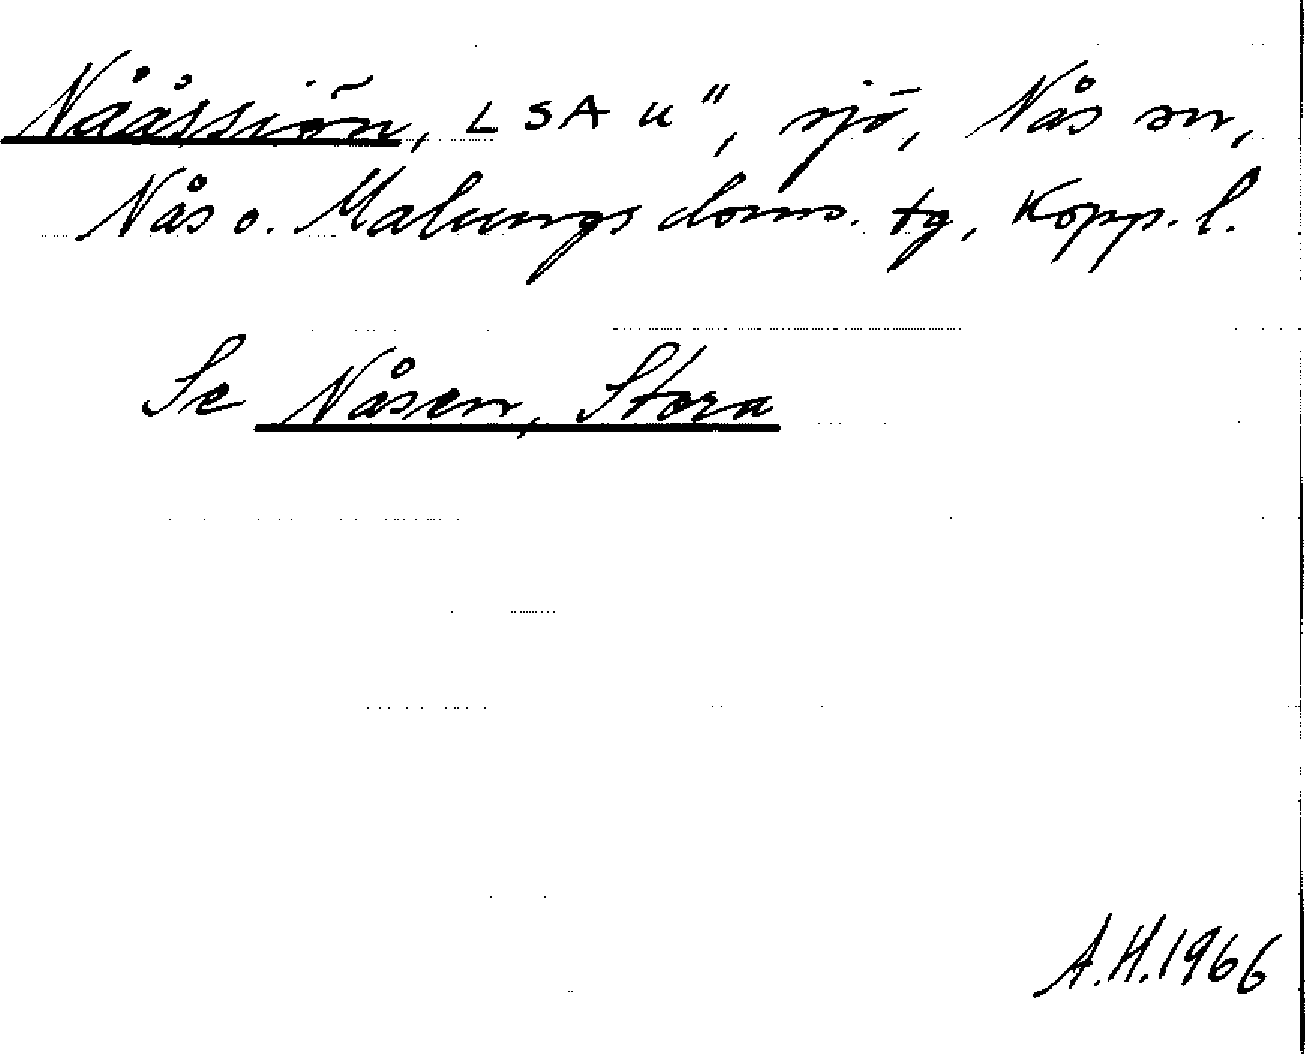 Nååssiön, LSA u", sjö, Nås sn,
Nås o. Malungs doms. tg, Kopp. l.
Se Nåsen, Stora
A.H.1966